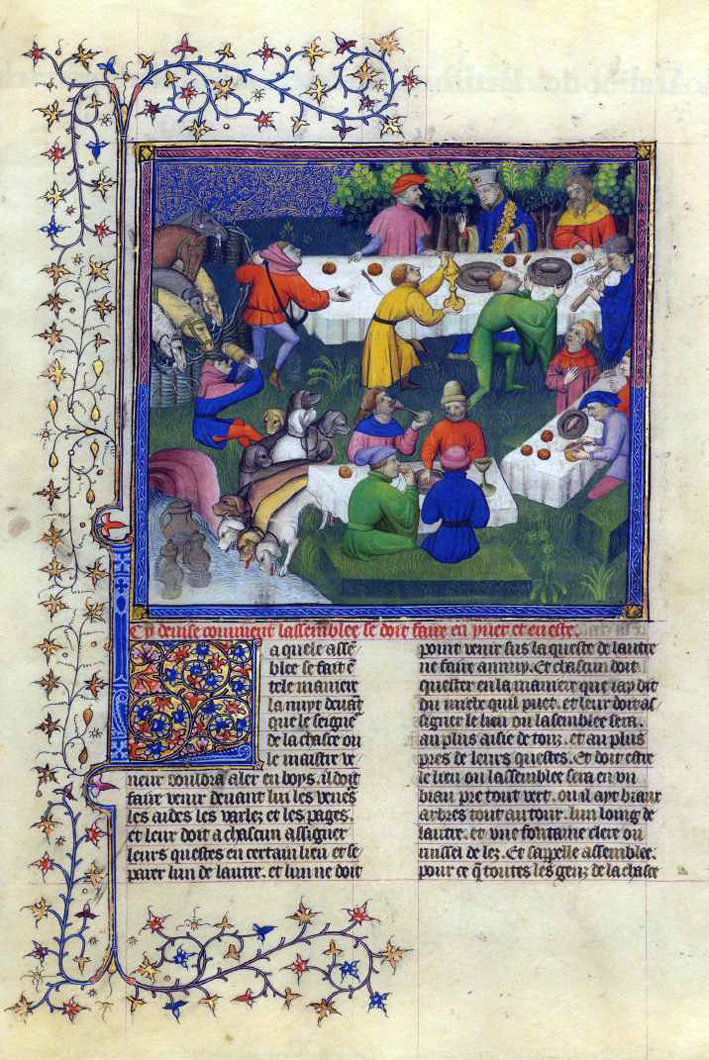 Cy deuise comment lassemblee se doit faire en yuer et en este.
a quele asse
blee se fait ē
tele maniere
la nuyt deuāt
que le seigne
de la chasce ou
le maistre ve
neur vouldra aler en boys. il doit
faire venir deuant lui les venēs
les aides les varlez et les pages.
et leur doit a chascun assigner
leurs questes en certain lieu et se
parer lun de lautre. et lun ne doit
point venir sus la queste de lautre
ne faire annuy. Et chascun doit
quester en la maniere que iay dit
du miex quil puet. et leur doit as
signer le lieu ou lasemblee sera.
au plus aisie de touz. et au plus
pres de leurs questes. Et doit estre
le lieu ou lassemblee sera en vn
biau pre tout vert. ou il ayt biaux
arbres tout autour. lun loing de
lautre. et vne fontaine clere ou
ruissel de lez. Et sappelle assemblee.
pour ce q̄ toutes les genz de la chasce